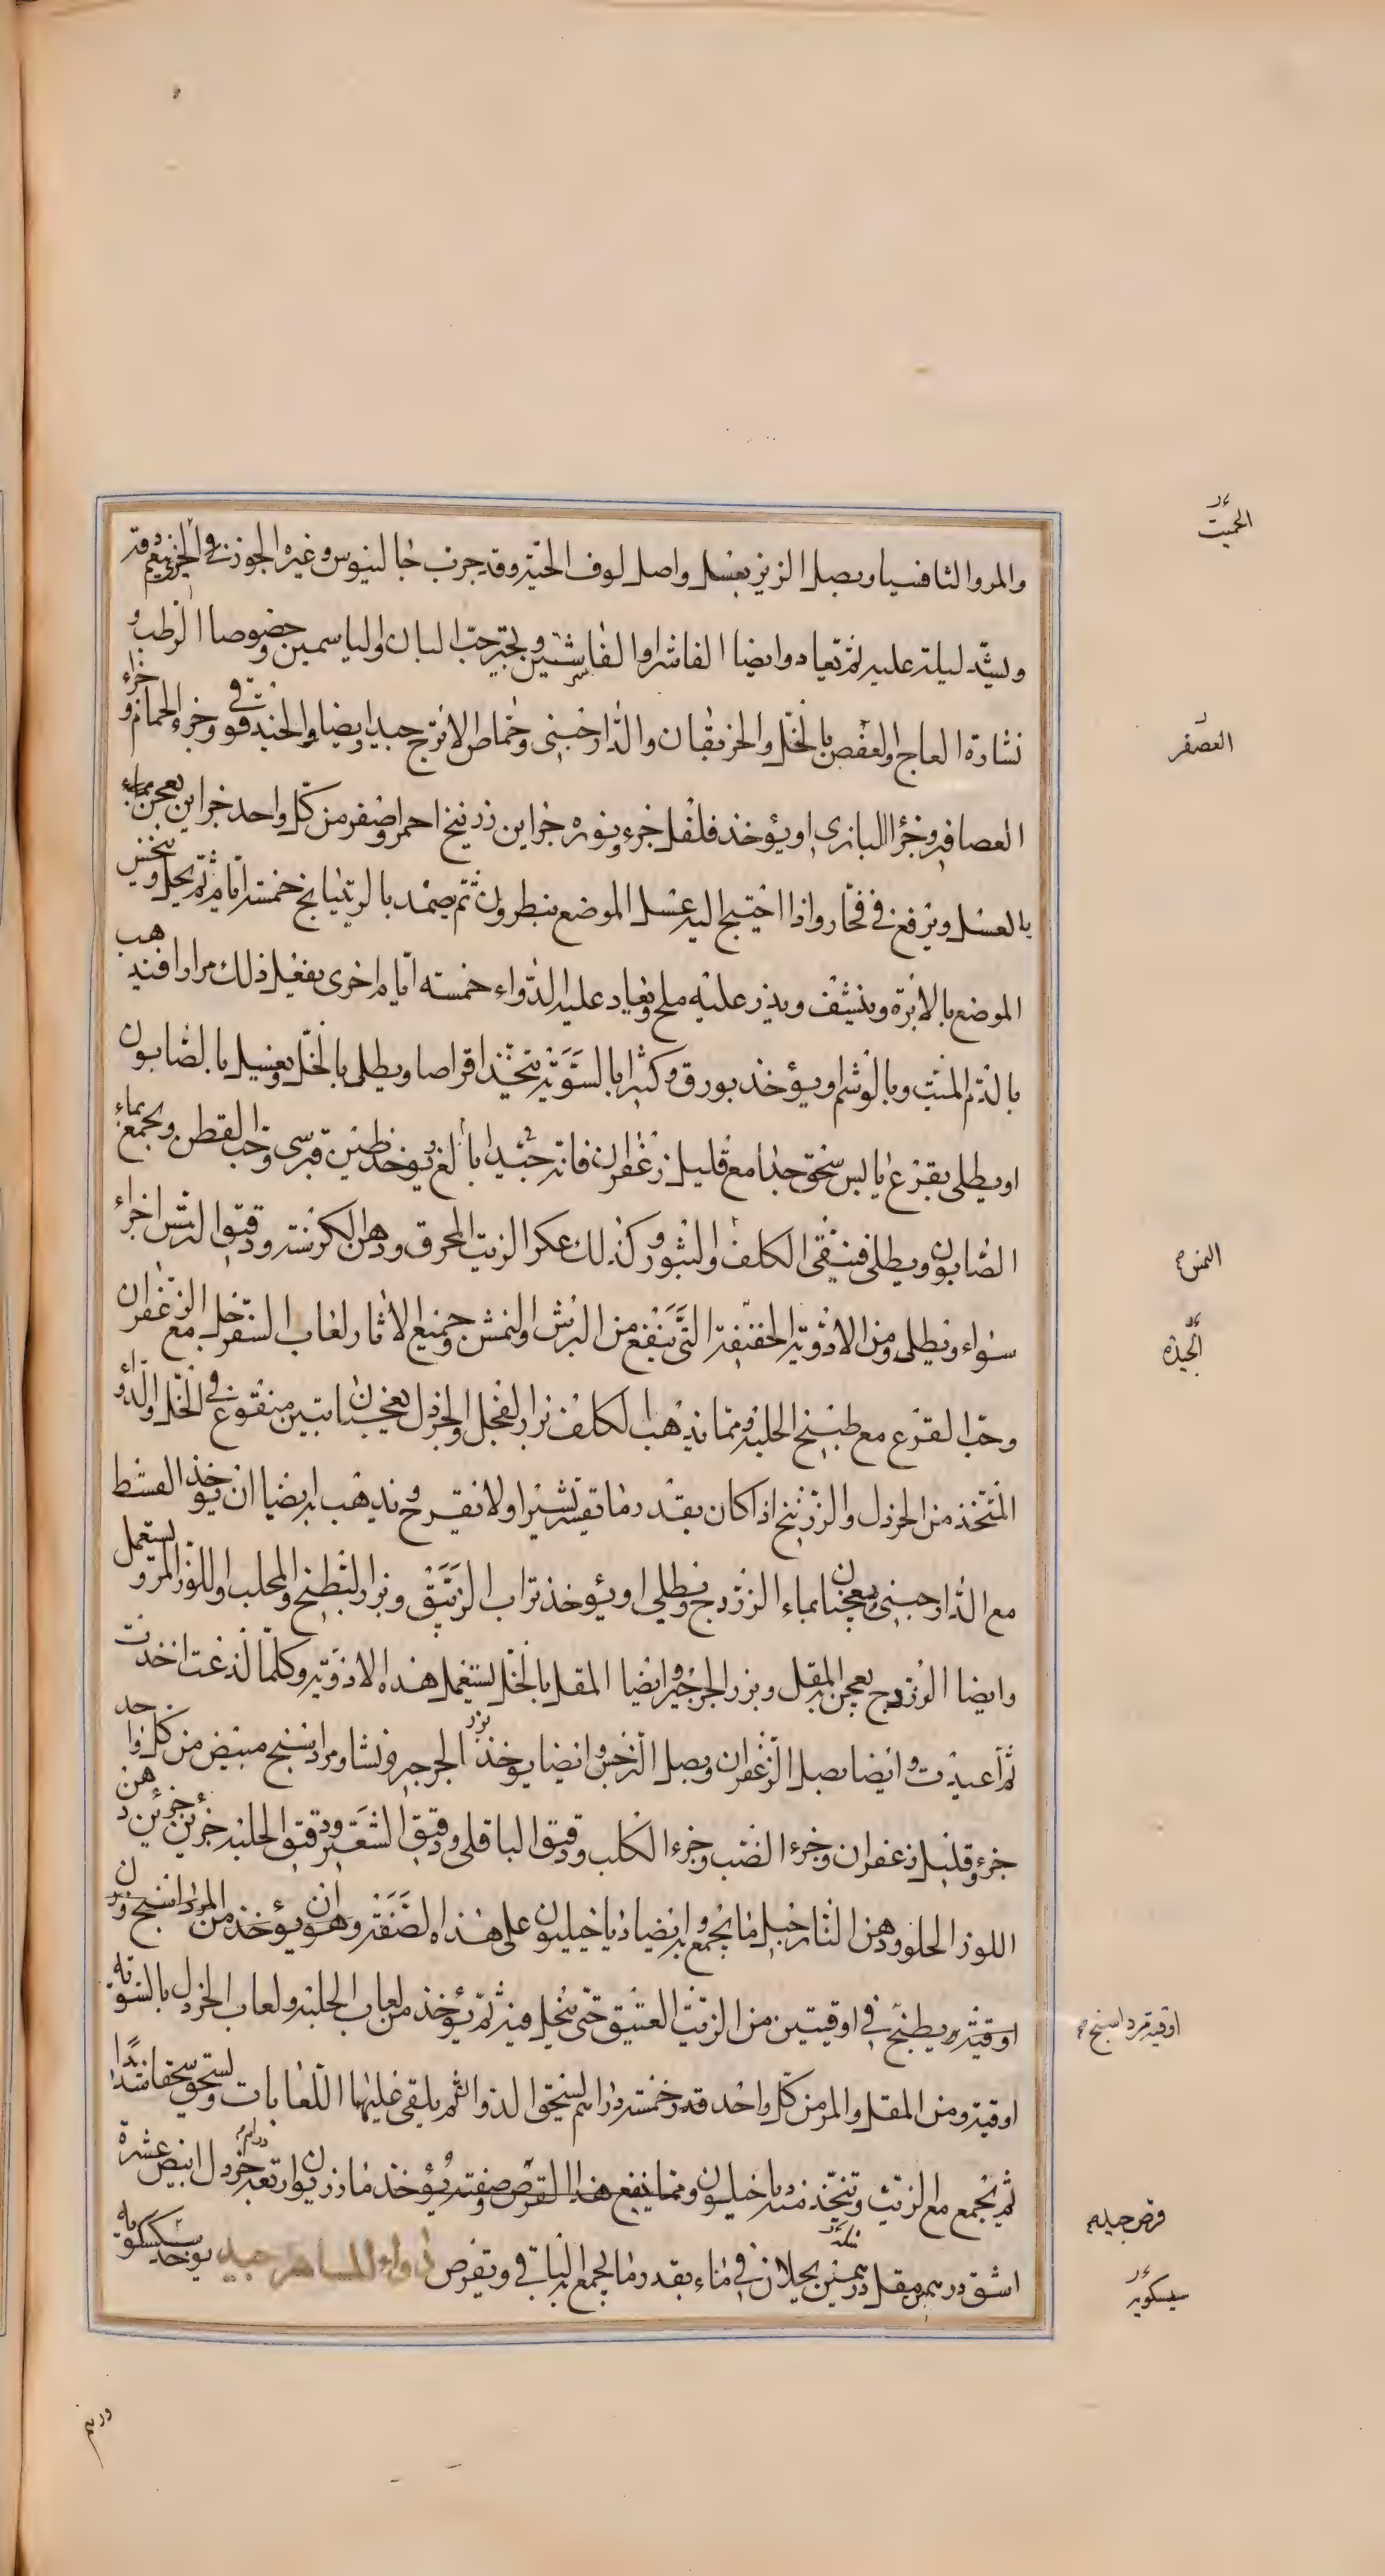 والمر والثافسيا وبصل الزيز بعسل واصل لوف الحية وقد جرب جالينوس وغيره الجوز
ويشد ليلة عليه ثم تعاد وايضا الفاشرا والفاشرستين وبجير حب البان والياسمين وخصوصا الرطب و
نشارة العاج والعفص بالخل والخربقان والدارصيني وحماض الاترج جيد ايضا والحندقوقى وخرء الحمام و خرء
العصافير وخرؤ البازى او يؤخذ فلفل جزء ونوره جزاين زرنيخ احمر واصفر من كل واحد جزاين يعجن
بالعسل ويرفع في فخار واذا احتيج اليه غسل الموضع بنطرون ثم يضمد بالريتيانج خمسة ايام ثم يحل وينخس
الموضع بالابرة وينشف ويذر عليه ملح ويعاد عليه الدواء خمسته ايام اخرى يفعل ذلك مرارا فيذهب
بالدم الميت وبالوشم او يؤخذ بورق وكثيرا بالسوية يتخذ اقراصا ويطلى بالخل ويغسل بالصابون
او يطلى بقرع يابس سحق جدا مع قليل زعفران فانه جيد بالغ ويؤخذ طين قبرسى وحب القطن ويجمع بماء
الصابون ويطلى فينقى الكلف والبثور وكذلك عكر الزيت المحرق ودهن الكرسنة ودقيق الترمس اجزاء
سواء ويطلى ومن الادوية الخفيفة التى تنفع من البرش والنمش وجميع الاثار لعاب السفرجل مع الزعفران
وحب القرع مع طبيخ الحلبة ومما يذهب الكلف بزر الفجل والخردل يعجنان بتين منقوع في الخل والدواء
المتخذ من الخردل والزرنيخ اذا كان بقدر ما تقشر تقشيرا ولا تقرح ويذهب به ايضا ان يؤخذ القسط
مع الدارصيني ويعجنا بماء الزردج ويطلى او يؤخذ تراب الزيبق وبزر البطيخ والمحلب واللوز المر ويستعمل
وايضا الوزدج يعجن به المقل وبزر الجرجير وايضا المقل بالخل يستعمل هذه الادوية وكلما لذعت اخذت
ثم اعيدت وايضا بصل الزعفران وبصل النرجس وايضا يؤخذ بزر الجرجير ونشا ومرداسنج مبيض من كل واحد
جزء وقليل زعفران وخرء الضب وخرء الكلب ودقيق الباقلى ودقيق الشعير ودقيق الحلبة جزئين جزئين دهن
اللوز الحلو ودهن النارجيل ما يجمع به وايضا دياخيلون على هذه الصفة وهو ان يؤخذ من المرداسنج وزن
اوقية ويطبخ في اوقيتين من الزيت العتيق حتى ينحل فيه ثم يؤخذ من لعاب الحلبة ولعاب الخردل بالسوية
اوقية ومن المقل والمر من كل واحد قدر خمسة دراهم يسحق الدواء ثم يلقى عليها اللعابات ويسحق سحقا شديدا
ثم يجمع مع الزيت ويتخذ منه دياخيلون ومما ينفع هذا القرص وصفته يؤخذ مازريون اربعة دراهم خردل ابيض عشرة
اشق درهمين مقل درهمين يحلان في ماء بقدر ما يجمع به الباقى ويقرص دواء للساهر جيد يوخذ سكسكويه
العصفر
الجيدة
اوقية مرداسنج
قرص جيد
سيسكويه
درهم